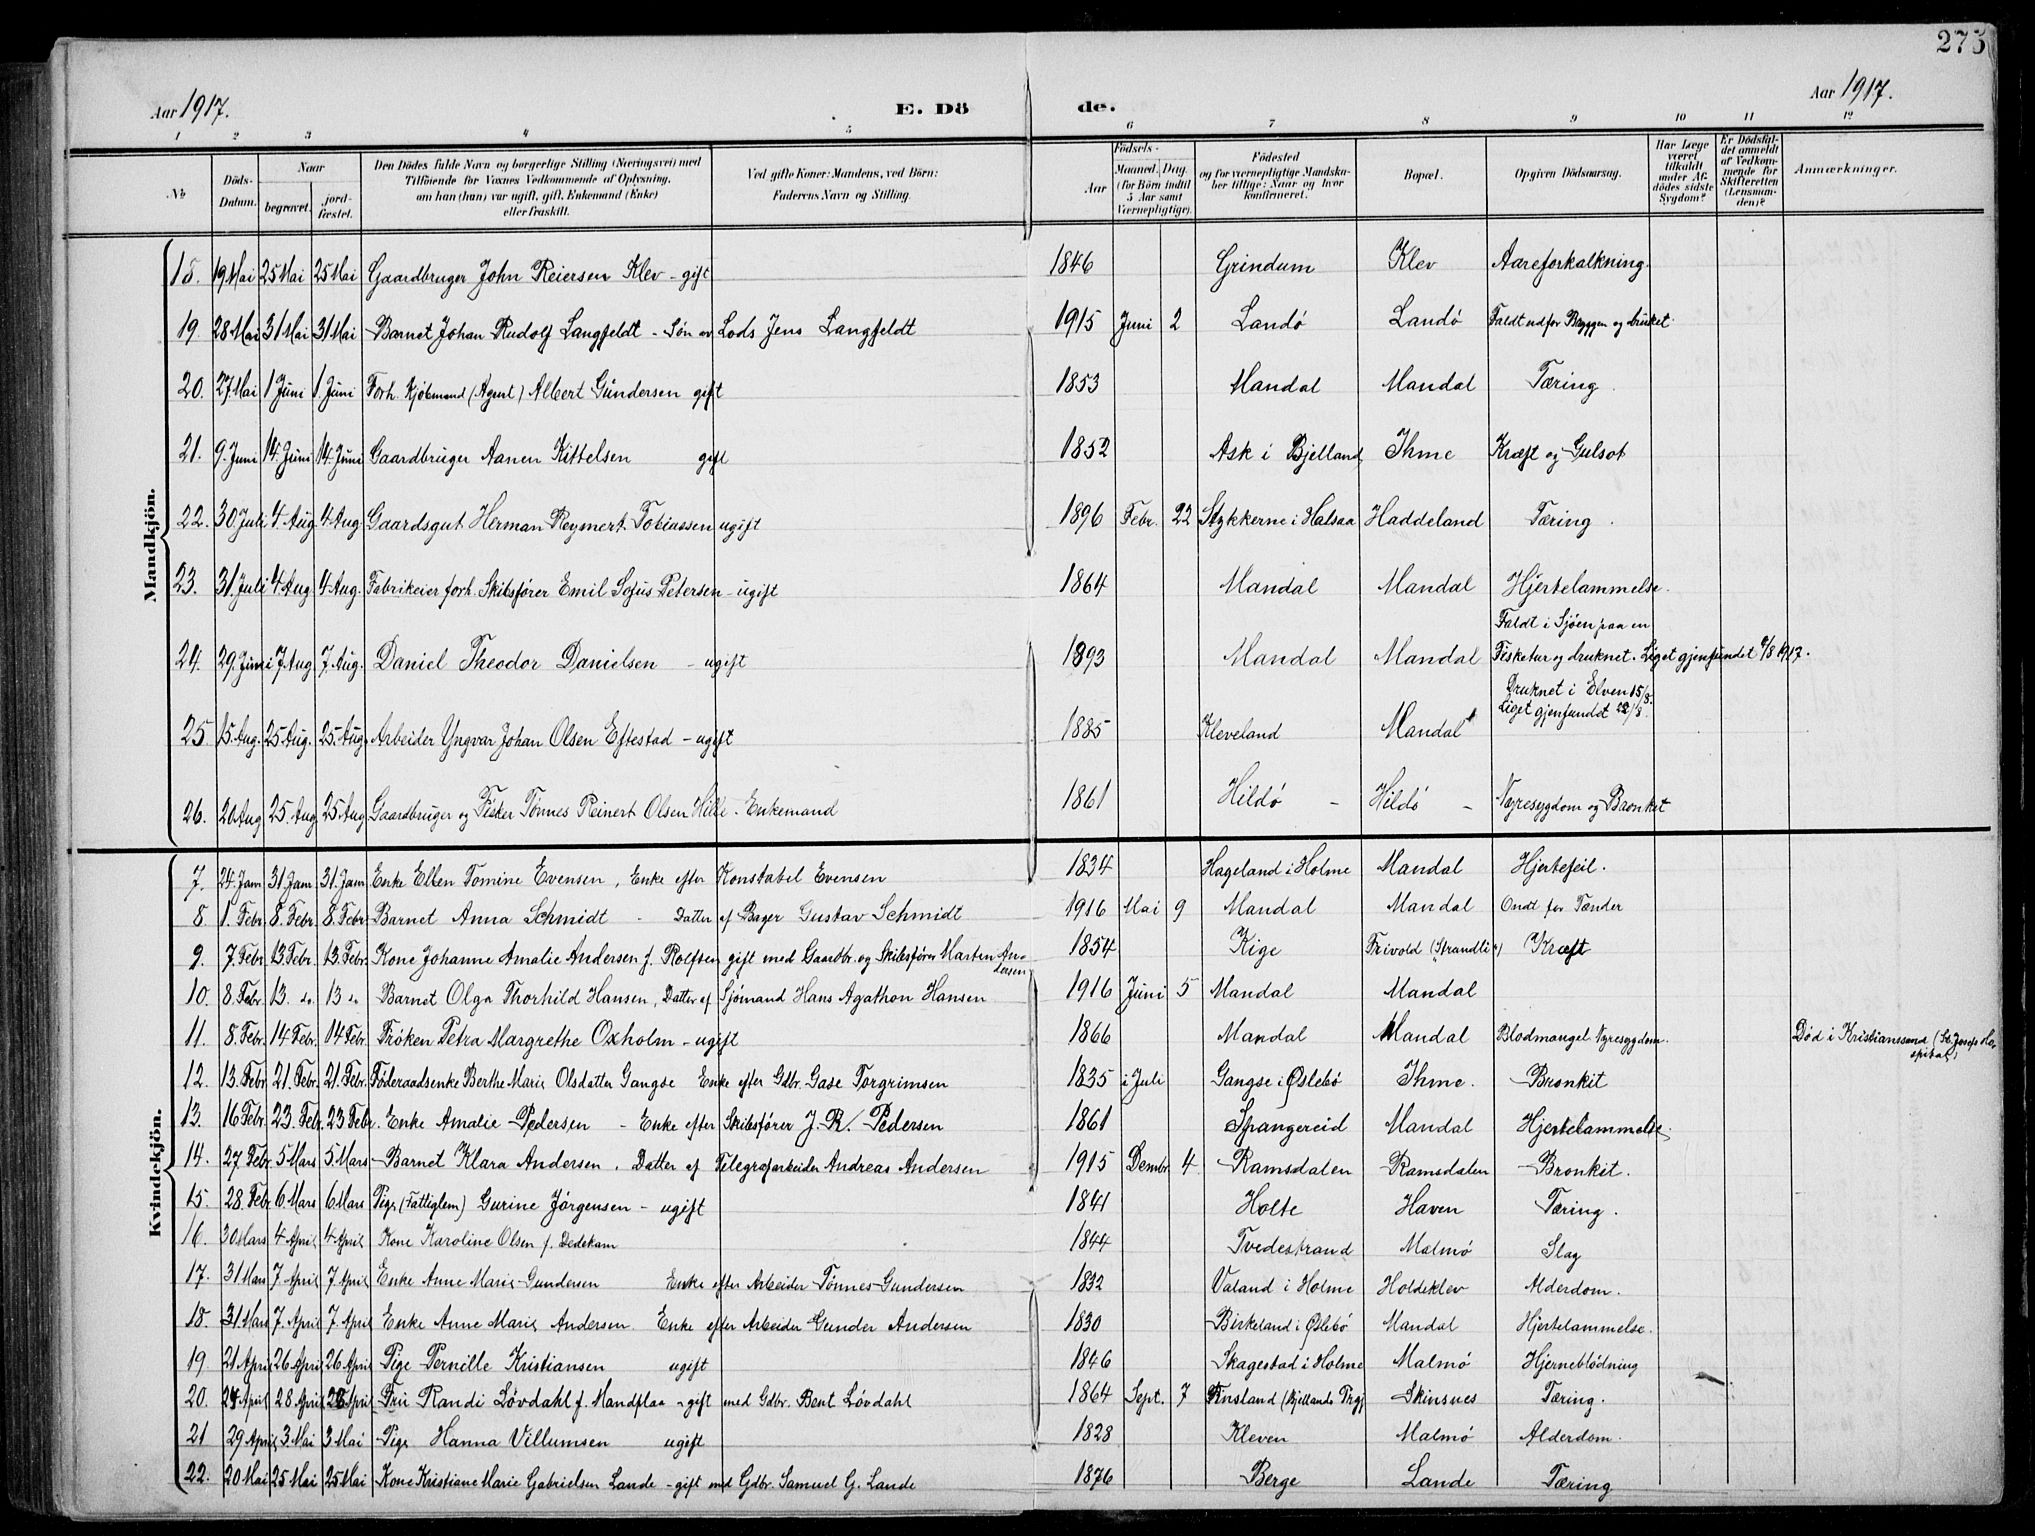 275
Aar 1917.
E. Dö de.
Aar 1917.
1 2 3 4 5 6 7 8 9 10 11 12
No
Döds-Datum.
Naar
begravet.
jord-fæstet.
Den Dödes fulde Navn og borgerlige Stilling (Næringsvei) med Tilföiende for Voxnes Vedkommende af Oplysning, om han (hun) var ugift, gift, Enkemand (Enke) eller fraskilt.
Ved gifte Koner: Mandens, ved Börn: Faderens Navn og Stilling.
Aar
Födsels-
Maaned. Dag.
(for Börn indtil 5 Aar samt Værnepligtige).
Födested og for værnepligtige Mandskaber tillige: Naar og hvor konfirmeret.
Bopæl.
Opgiven Dödsaarsag.
Har Læge været tilkaldt under Afdödes sidste Sygdom?
Er Dödsfaldet anmeldt af Vedkommende for Skifteretten (Lensmanden)?
Anmærkninger.
Mandkjön.
18. 19 Mai 25 Mai 25 Mai Gaardbruger John Reiersen Klev - gift 1846 Grindum Klev Aareforkalkning.
19. 28 Mai 31 Mai 31 Mai Barnet Johan Rudolf Langfeldt - Søn av Lods Jens Langfeldt 1915 Juni 2 Landö Landö Faldt udfor Bryggen og druknet
20. 27. Mai 1 Juni 1. Juni Forh. Kjöbmand (Agent) Albert Gundersen gift 1853 Mandal Mandal Tæring.
21. 9. Juni 14. Juni 14. Juni Gaardbruger Aanen Kittelsen gift 1852 Ask i Bjelland Ihme Kræft og Gulsot
22. 30. Juli 4. Aug. 4. Aug. Gaardsgut Herman Reymert Tobiassen ugift 1896 Febr. 22 Stykkerne i Halsaa Haddeland Tæring.
23. 31. Juli 4 Aug 4 Aug. Fabrikeier forh. Skibsfører Emil Sofus Petersen - ugift 1864 Mandal Mandal Hjertelammelse.
24. 29. Juni 7. Aug 7. Aug. Daniel Theodor Danielsen - ugift 1893 Mandal Mandal Faldt i Sjöen paa en Fisketur og druknet. Liget gjenfundet 6/8 1917.
25. 15. Aug. 25 Aug. 25. Aug. Arbeider Yngvar Johan Olsen Eftestad - ugift 1885 Kleveland Mandal Druknet i Elven 15/8. Liget gjenfundet 22/8.
26. 20 Aug 25. Aug 25 Aug Gaardbruger og Fisker Tönnes Reinert Olsen Hille - Enkemand 1861 Hildö - Hildö - Nyresygdom og Bronket
Kvindekjön.
7. 24. Jan 31. Jan 31. Jan Enke Ellen Tomine Evensen, Enke efter Konstabel Evensen 1834 Hageland i Holme Mandal Hjertefeil.
8. 1. Febr 8. Febr 8. Febr Barnet Anna Schmidt - Datter af Bager Gustav Schmidt 1916 Mai 9 Mandal Mandal Ondt for Tænder
9. 7. Febr 13. Febr. 13. Febr. Kone Johanne Amalie Andersen f. Rolfsen gift med Gaardbr. og Skibsfører Marten Andersen 1854 Kige Frivold (Strandli) Kræft
10. 8. Febr. 13. do. 13 do Barnet Olga Thorhild Hansen, Datter af Sjömand Hans Agathon Hansen 1916 Juni 5 Mandal Mandal
11. 8. Febr. 14 Febr. 14 Febr. Fröken Petra Margrethe Oxholm - ugift 1866 Mandal Mandal Blodmangel. Nyresygdom. Död i Kristianssand (St. Josefs Hospital)
12. 13. Febr 21. Febr. 21. Febr. Föderaadsenke Berthe Marie Olsdatter Gangse Enke efter Gdbr. Gase Torgrimsen 1835 i Juli Gangse i Øslebö Ihme. Bronkit
13. 16 Febr. 23. Febr 23 Febr. Enke Amalie Pedersen - Enke efter Skibsfører J. R. Pedersen 1861 Spangereid Mandal Hjertelammelse.
14. 27 Febr. 5 Mars 5 Mars Barnet Klara Andersen. Datter af Telegrafarbeider Andreas Andersen 1915 Dembr 4 Ramsdalen Ramsdalen Bronkit.
15. 28. Febr 6. Mars 6 Mars Pige (Fattiglem) Gurine Jörgensen - ugift 1841 Holte Haven Tæring.
16. 30 Mars 4 April 4 April Kone Karoline Olsen f. Dedekam 1844 Tvedestrand Malmö Slag
17. 31 Mars 7 April 7 April Enke Anne Marie Gundersen Enke efter Arbeider Tönnes Gundersen 1832 Valand i Holme Holdeklev Alderdom.
18. 31 Mars 7. April 7. April Enke Anne Marie Andersen Enke efter Arbeider Gunder Andersen 1830 Birkeland i Øslebö Mandal Hjertelammelse.
19 21 April 26 April 26 April Pige Pernille Kristiansen ugift 1846 Skagestad i Holme Malmö Hjerneblödning
20. 24 April 28 April 28 April Fru Randi Lövdahl f. Mandflaa - gift med Gdbr. Bent Lövdahl 1864 Sept. 7 Finsland (Bjellands Prgj Skinsnes Tæring.
21 29 April 3. Mai 3 Mai Pige Hanna Villumsen ugift 1828 Kleven Malmö Alderdom.
22. 20 Mai 25 Mai 25 Mai Kone Kristiane Marie Gabrielsen Lande - gift med Gdbr. Samuel G. Lande 1876 Berge Lande Tæring